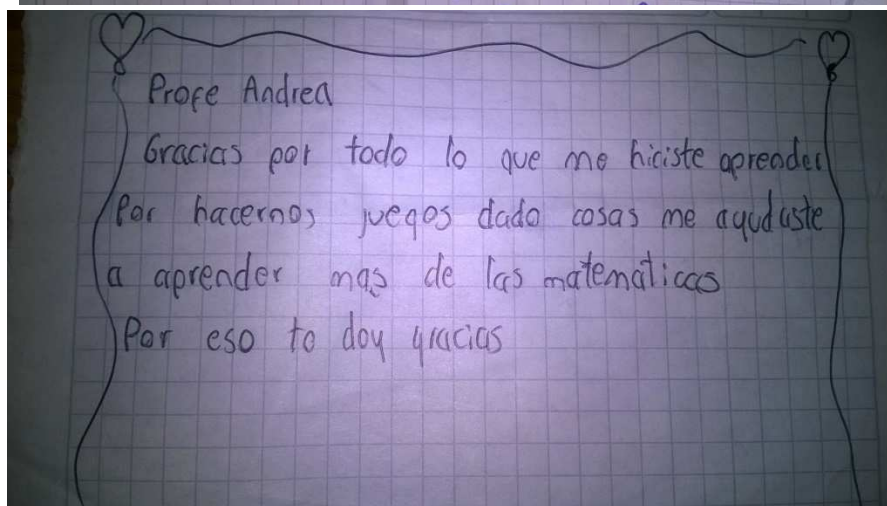 Profe Andrea
Gracias por todo lo que me hiciste aprender
Por hacernos juegos dado cosas me ayudaste
a aprender mas de las matemáticas
Por eso te doy gracias